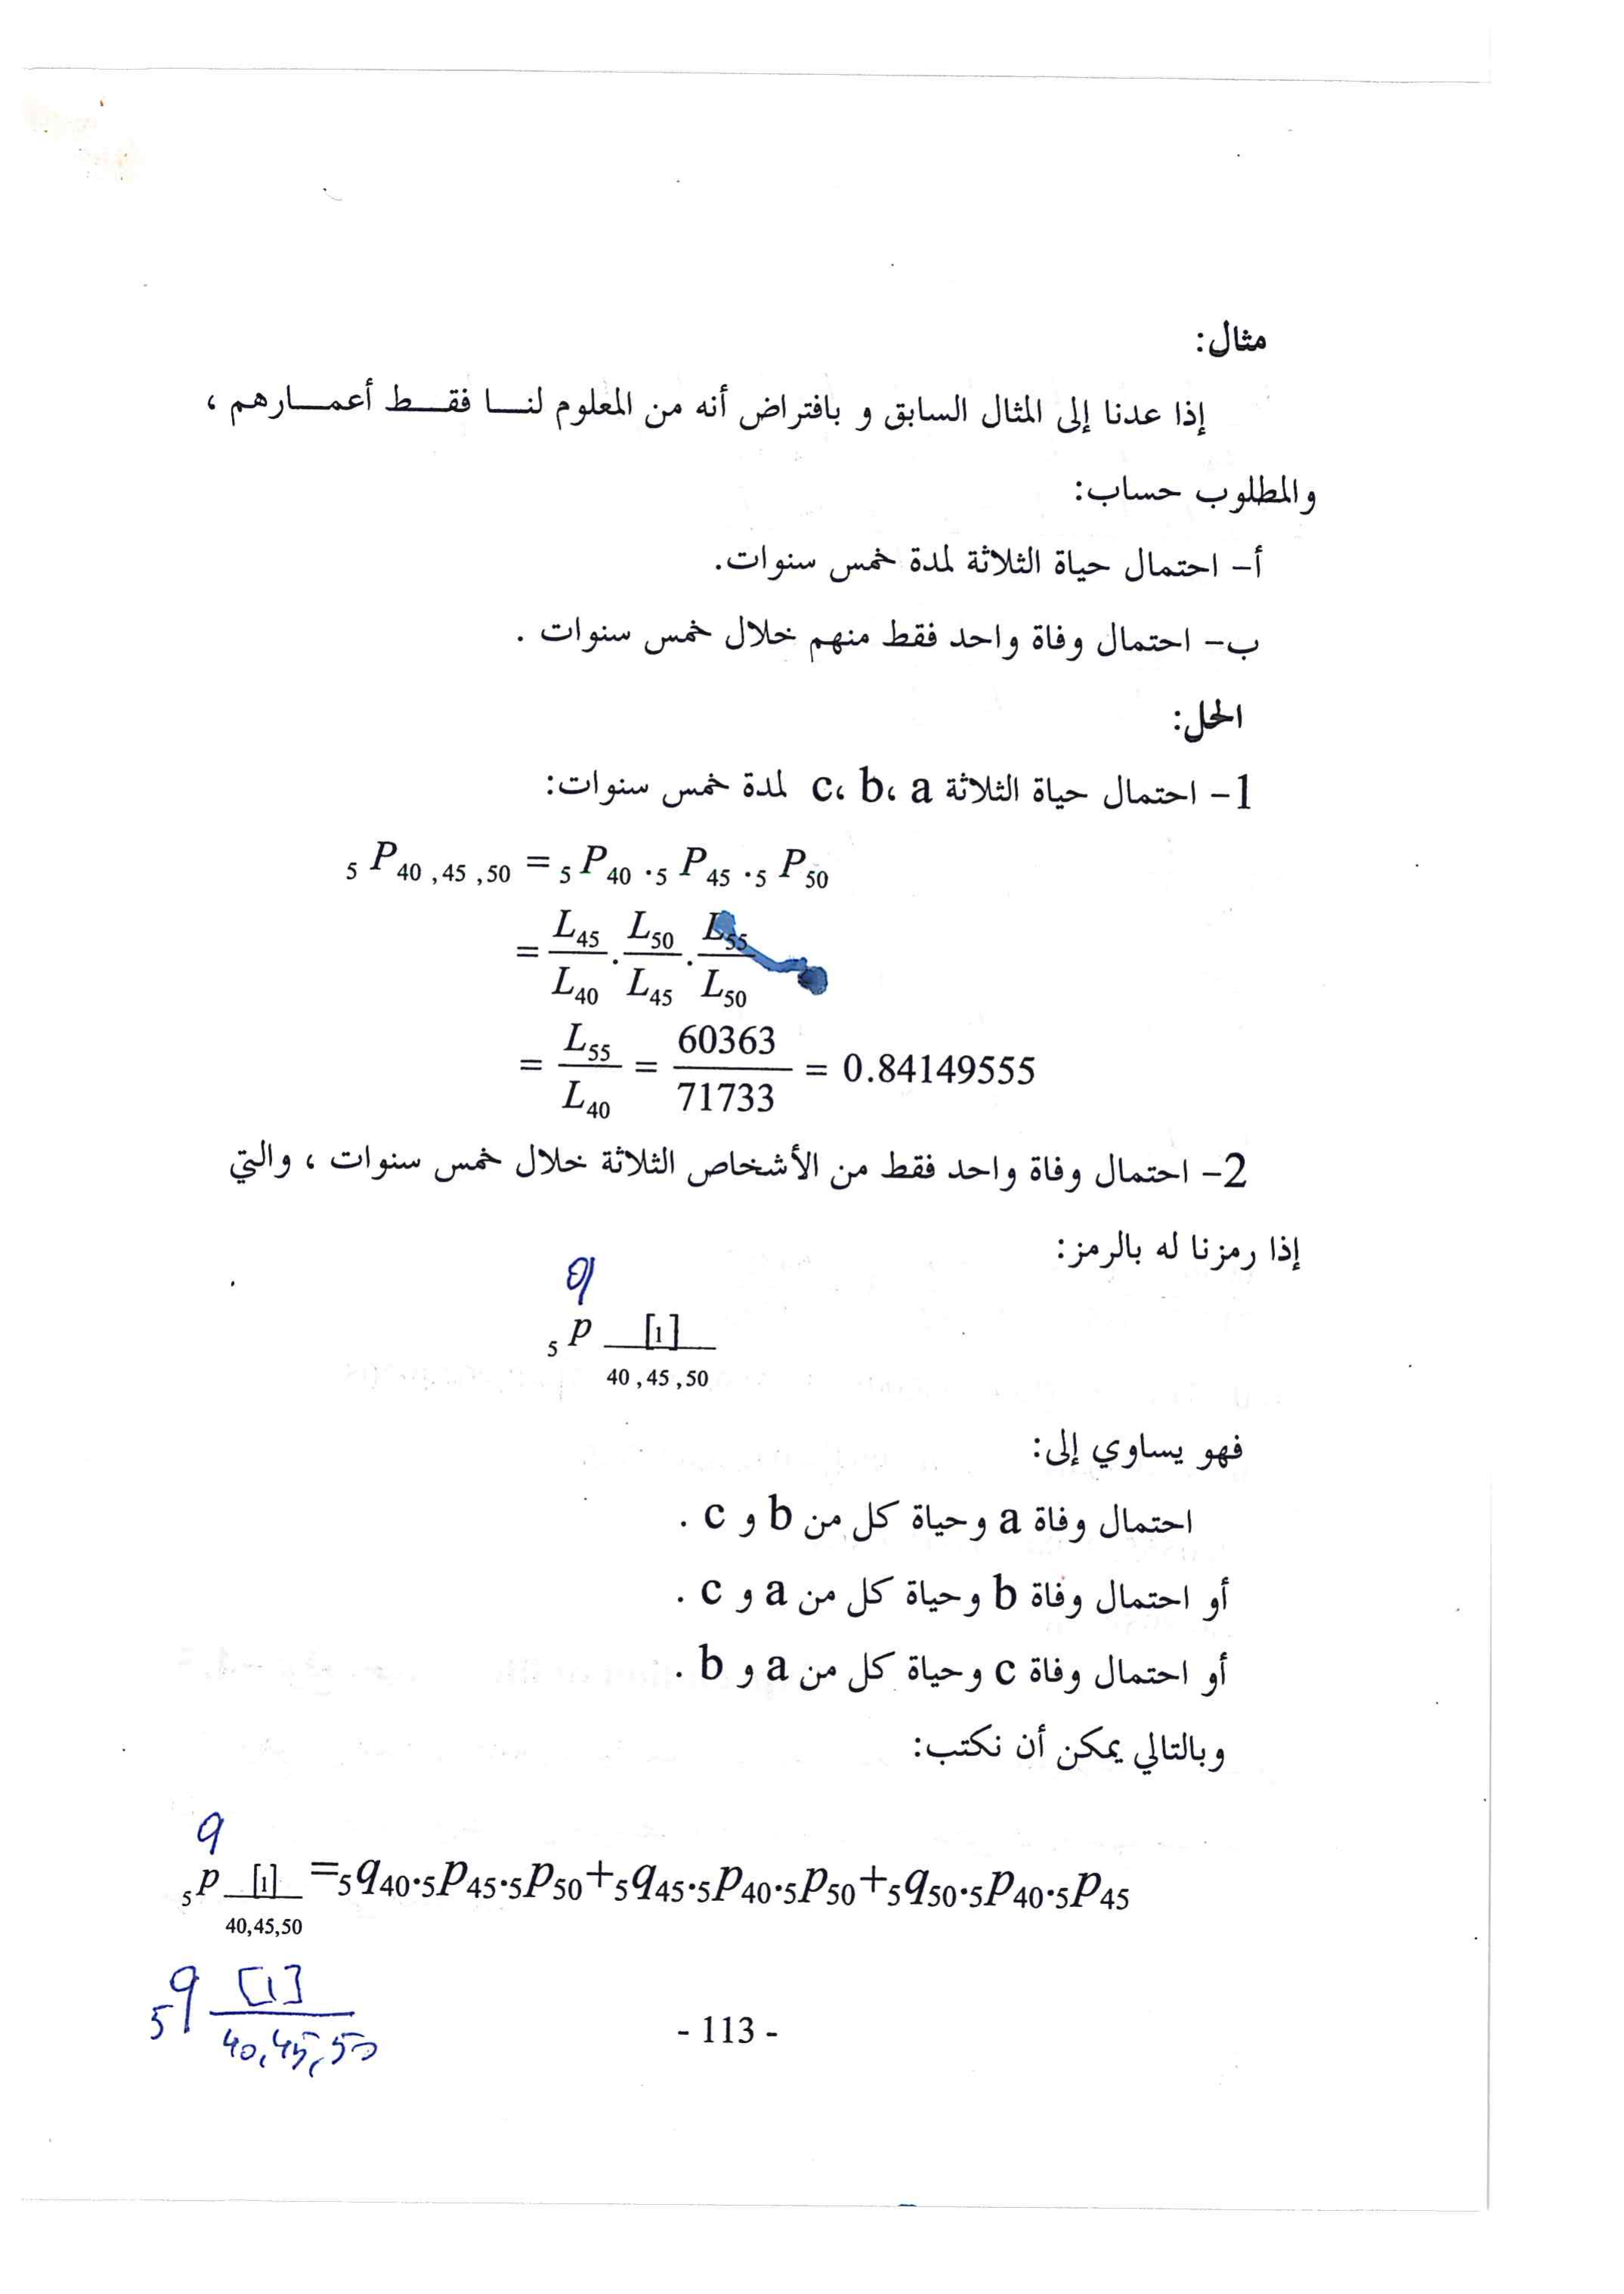 مثال:
إذا عدنا إلى المثال السابق و بافتراض أنه من المعلوم لنـــا فقـــط أعمـــارهم ،
والمطلوب حساب:
أ- احتمال حياة الثلاثة لمدة خمس سنوات.
ب- احتمال وفاة واحد فقط منهم خلال خمس سنوات .
الحل:
1- احتمال حياة الثلاثة c، b، a لمدة خمس سنوات:
₅P₄₀ ,₄₅ ,₅₀ = ₅P₄₀ .₅P₄₅ .₅P₅₀
= L₄₅/L₄₀ . L₅₀/L₄₅ . L₅₅/L₅₀
= L₅₅/L₄₀ = 60363/71733 = 0.84149555
2- احتمال وفاة واحد فقط من الأشخاص الثلاثة خلال خمس سنوات ، والتي
إذا رمزنا له بالرمز:
q
₅p [1]
40 ,45 ,50
فهو يساوي إلى:
احتمال وفاة a وحياة كل من b و c .
أو احتمال وفاة b وحياة كل من a و c .
أو احتمال وفاة c وحياة كل من a و b .
وبالتالي يمكن أن نكتب:
q
₅p [1] =₅q₄₀.₅p₄₅.₅p₅₀+₅q₄₅.₅p₄₀.₅p₅₀+₅q₅₀.₅p₄₀.₅p₄₅
40,45,50
₅q [1]
40,45,50
- 113 -